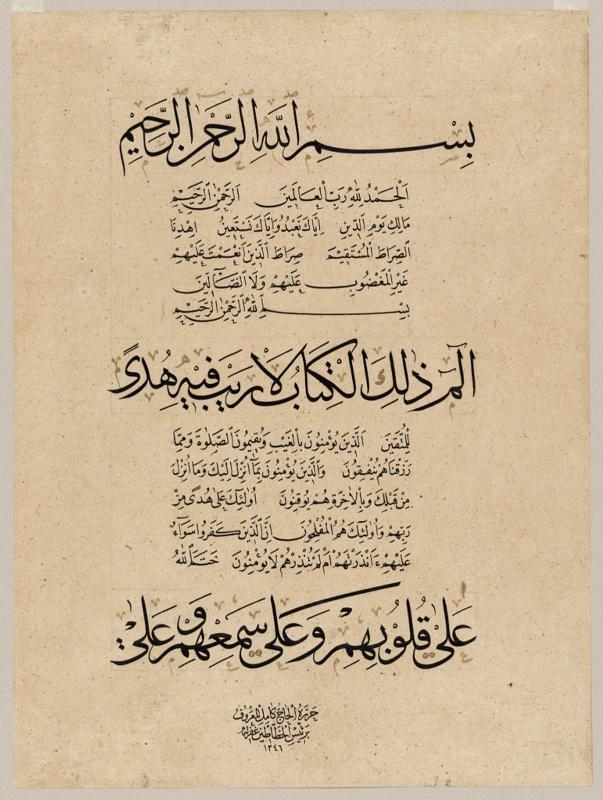 بِسْمِ اللَّهِ الرَّحْمٰنِ الرَّحِيمِ
اَلْحَمْدُ لِلّٰهِ رَبِّ الْعَالَمِينَ الرَّحْمٰنِ الرَّحِيمِ
مَالِكِ يَوْمِ الدِّينِ اِيَّاكَ نَعْبُدُ وَاِيَّاكَ نَسْتَعِينُ اِهْدِنَا
الصِّرَاطَ الْمُسْتَقِيمَ صِرَاطَ الَّذِينَ اَنْعَمْتَ عَلَيْهِمْ
غَيْرِ الْمَغْضُوبِ عَلَيْهِمْ وَلَا الضَّآلِّينَ
بِسْمِ اللّٰهِ الرَّحْمٰنِ الرَّحِيمِ
الٓمٓ ذٰلِكَ الْكِتَابُ لَا رَيْبَ فِيهِ هُدًى
لِلْمُتَّقِينَ اَلَّذِينَ يُؤْمِنُونَ بِالْغَيْبِ وَيُقِيمُونَ الصَّلٰوةَ وَمِمَّا
رَزَقْنَاهُمْ يُنْفِقُونَ وَالَّذِينَ يُؤْمِنُونَ بِمَآ اُنْزِلَ اِلَيْكَ وَمَا اُنْزِلَ
مِنْ قَبْلِكَ وَبِالْاٰخِرَةِ هُمْ يُوقِنُونَ اُولٰئِكَ عَلٰى هُدًى مِنْ
رَبِّهِمْ وَاُولٰئِكَ هُمُ الْمُفْلِحُونَ اِنَّ الَّذِينَ كَفَرُوا سَوَآءٌ
عَلَيْهِمْ ءَاَنْذَرْتَهُمْ اَمْ لَمْ تُنْذِرْهُمْ لَا يُؤْمِنُونَ خَتَمَ اللّٰهُ
عَلٰى قُلُوبِهِمْ وَعَلٰى سَمْعِهِمْ وَعَلٰى
حَرَّرَهُ الْحَاجُّ كَامِل الْمَعْرُوفُ
بِرَئِيسِ الْخَطَّاطِينَ غُفِرَ لَهُ
١٣٤٦